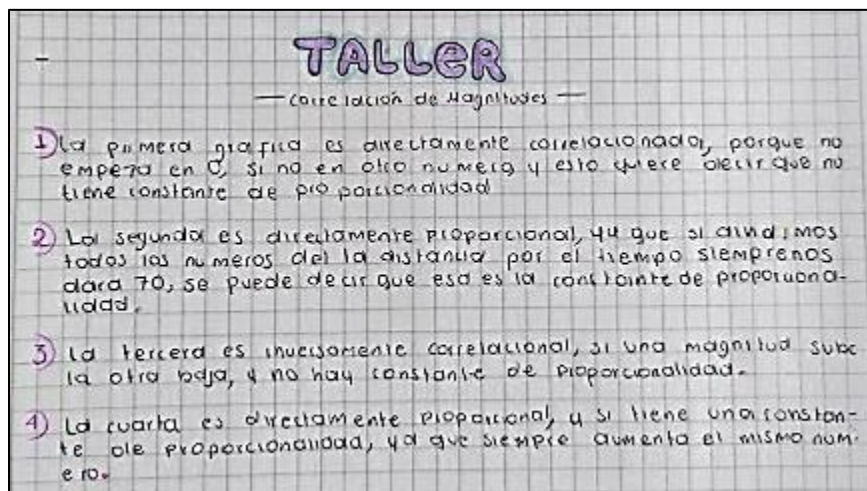 TALLER
— Correlación de Magnitudes —
1) La primera grafica es directamente correlacionada, porque no
empeza en 0, si no en otro numero y esto quiere decir que no
tiene constante de proporcionalidad
2) La segunda es directamente proporcional, ya que si dividimos
todos los numeros del la distancia por el tiempo siempre nos
dara 70, se puede decir que esa es la constante de proporciona-
lidad.
3) La tercera es inversamente correlacional, si una magnitud sube
la otra baja, y no hay constante de proporcionalidad.
4) La cuarta es directamente proporcional, y si tiene una constan-
te de proporcionalidad, ya que siempre aumenta el mismo num-
ero.